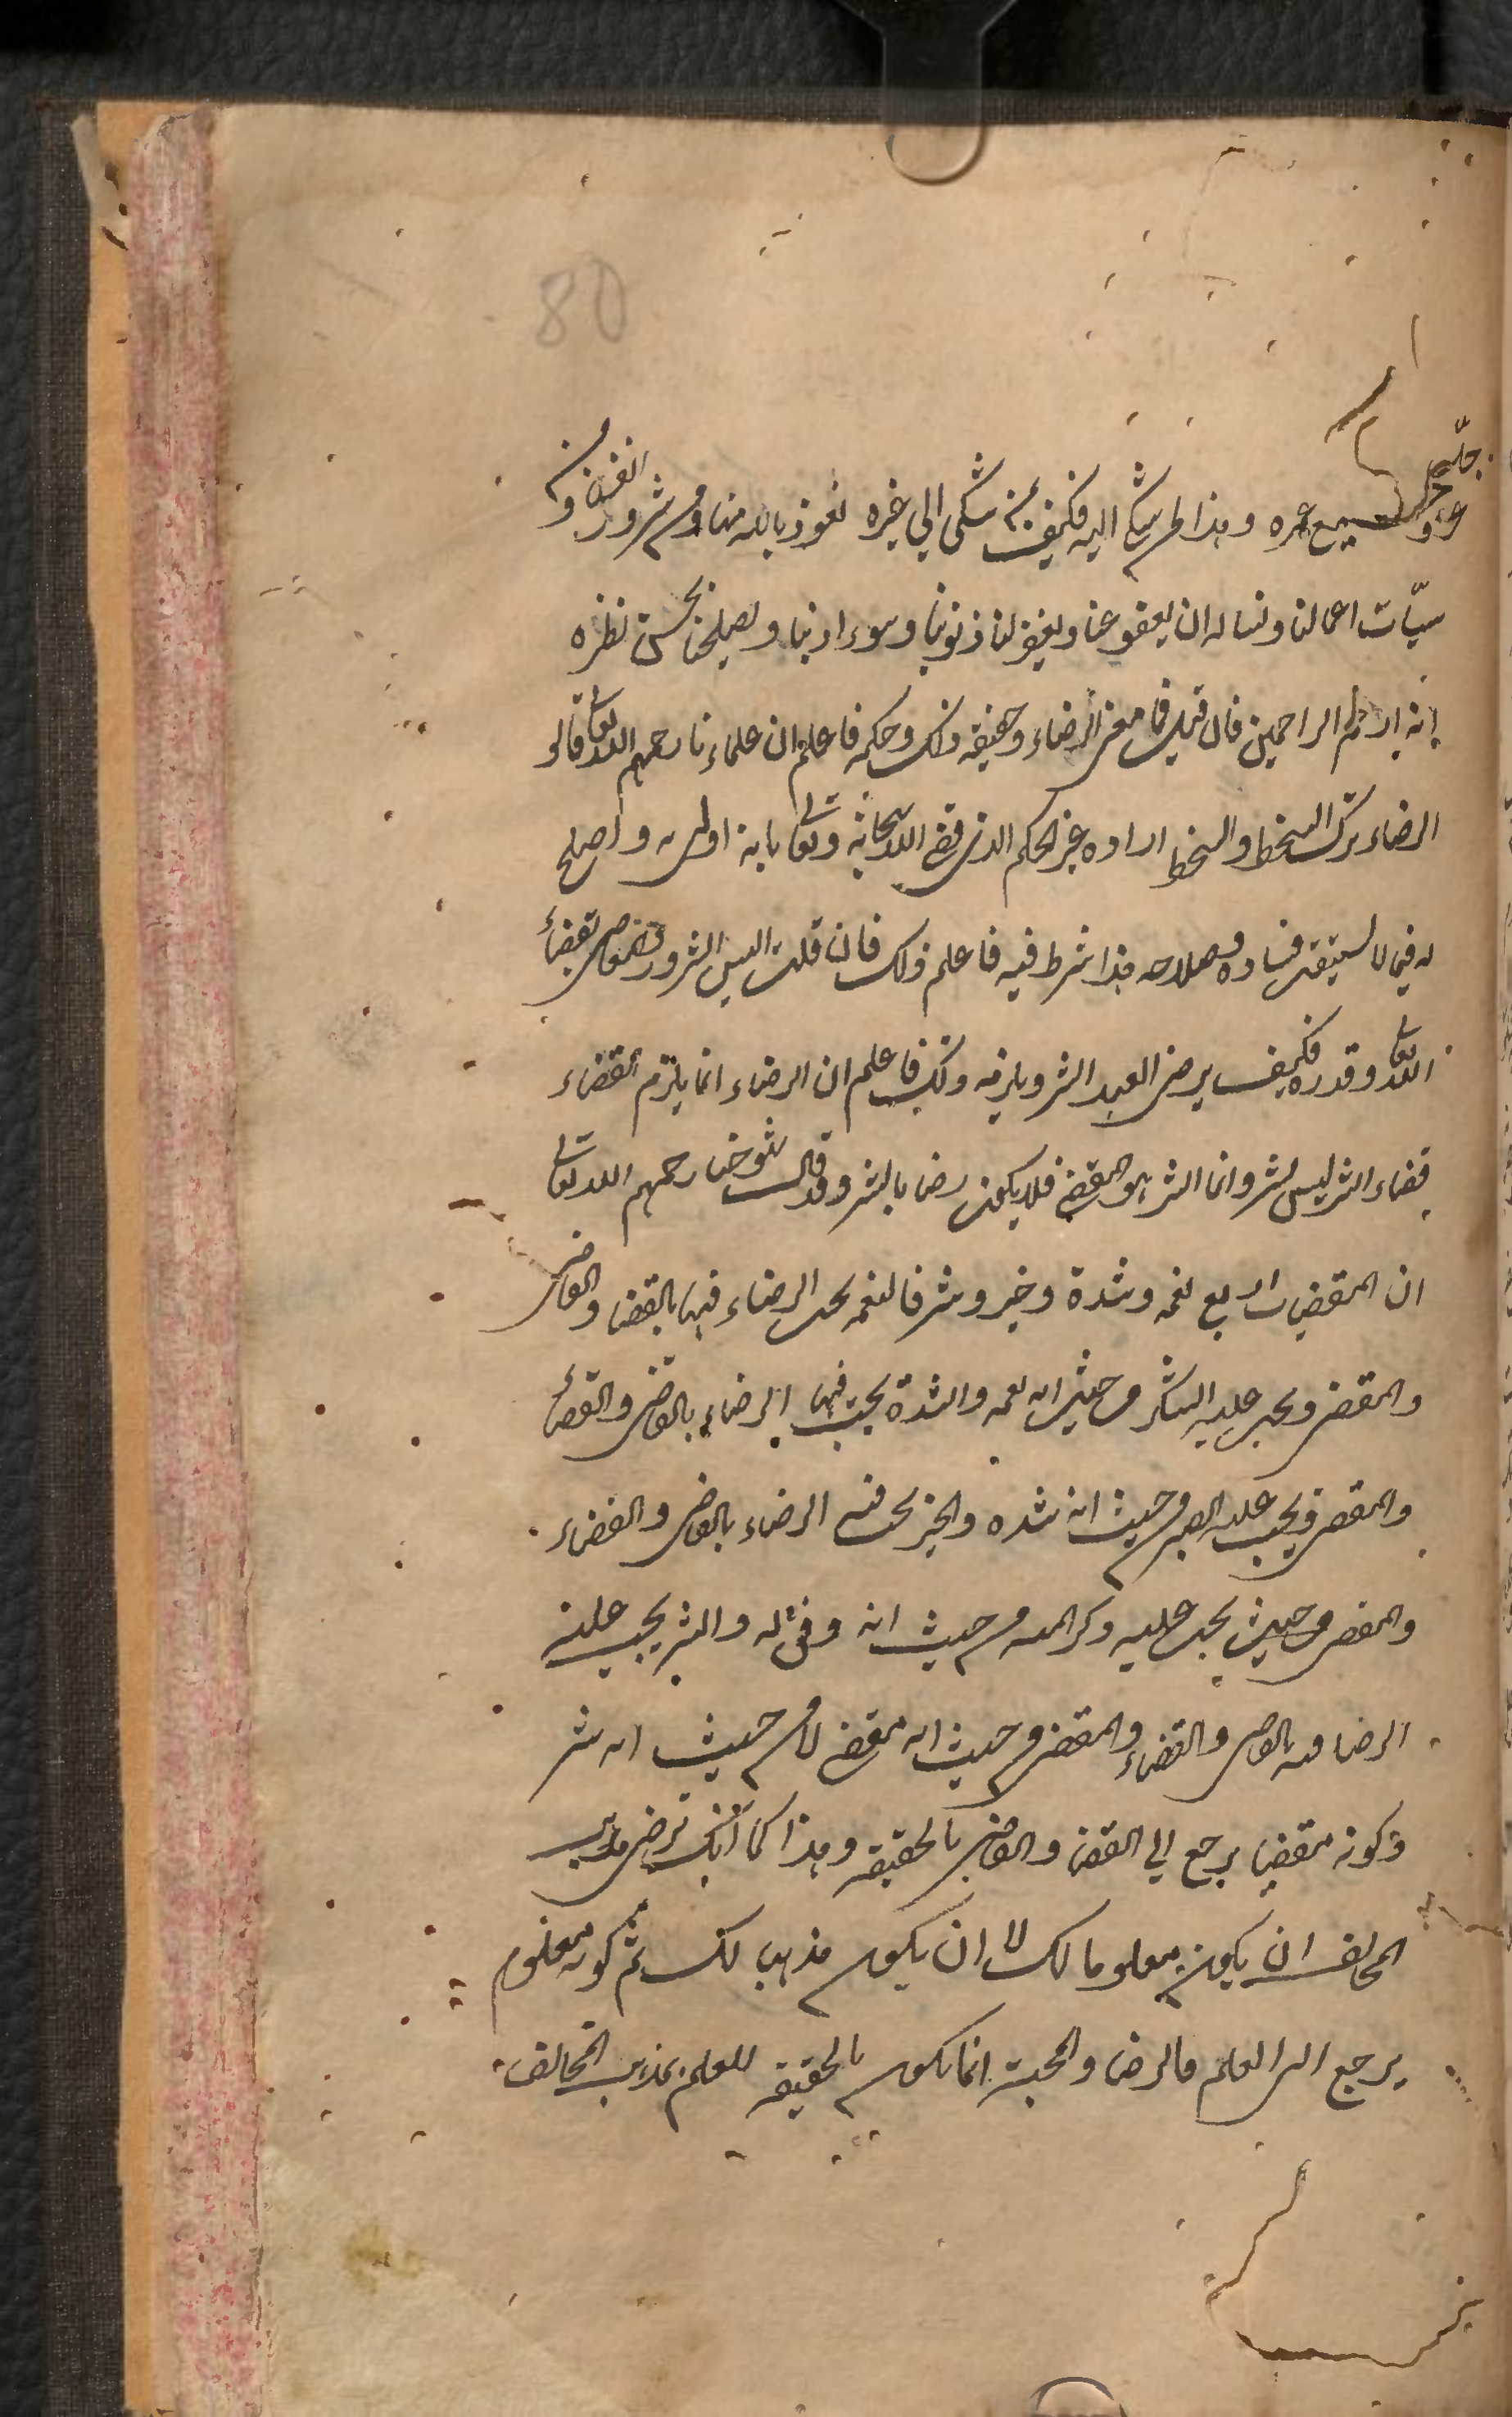 80
جلّ
عز و جميع عمره وهذا لمن شكى اليه فكيف بمن شكى الى غيره نعوذ بالله منها ومن شرور انفسنا ومن
سيّات اعمالنا ونساله ان يعفو عنا ويغفر لنا ذنوبنا وسوء ادبنا ويصلحنا بحسن نظره
انه ارحم الراحمين فان قيل فما معنى الرضاء وحقيقه ذلك وحكمه فاعلم ان علماءنا رحمهم الله تعالى قالو
الرضاء ترك السخط والسخط اراده غير الحكم الذى قضى الله سبحانه وتعالى بانه اولى به واصلح
له فيما لا يستيقن فساده وصلاحه هذا شرط فيه فاعلم ذلك فان قلت اليس الشرور والمعاصى بقضاء
الله تعالى وقدره فكيف يرضى العبد الشر ويلزمه ذلك فاعلم ان الرضاء انما يلزم بالقضاء
قضاء الشر ليس بشر وانما الشر هو المقضى فلا يكون رضا بالشر وقد قالت شيوخنا رحمهم الله تعالى
ان المقضيات اربع نعمه وشدة وخير وشر فالنعمه يجب الرضاء فيها بالقضا والقاضى
والمقضى ويجب عليه الشكر من حيث انه نعمه والشدة يجب فيها الرضاء بالقاضى والقضاء
والمقضى ويجب عليه الصبر من حيث انه شده والخير يجب فيه الرضاء بالقاضى والقضاء
والمقضى من حيث يجب عليه ذكر المنه من حيث انه وفق له والشر يجب عليه
الرضا فيه بالقاضى والقضاء والمقضى من حيث انه مقضى لا من حيث انه شر
وكونه مقضيا يرجع الى القضا والقاضى بالحقيقه وهذا كما انك ترضى مذهب
المخالف ان يكون معلوما لك لا ان يكون مذهب لك ثم كونه معلوم
يرجع الى العلم فالرضا والمحبة انما يكون بالحقيقه للعلم بمذهب المخالف